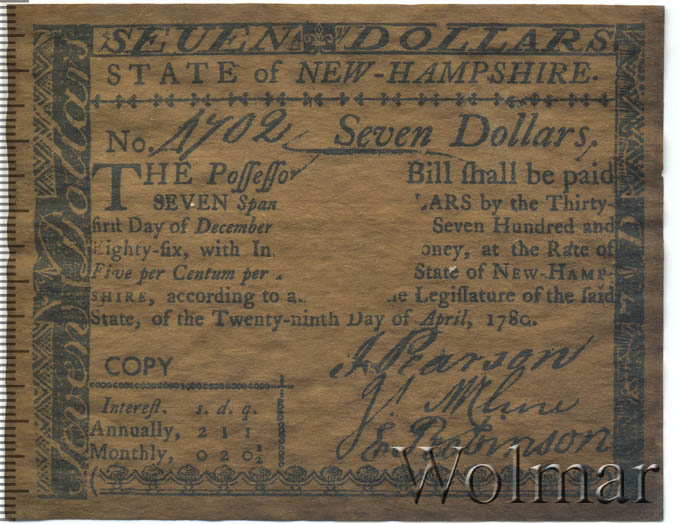 SEVEN DOLLARS
STATE of NEW-HAMPSHIRE.
No. 1702 Seven Dollars,
THE Poſſeſſor Bill ſhall be paid
SEVEN Span LARS by the Thirty-
firſt Day of December Seven Hundred and
Eighty-ſix, with In oney, at the Rate of
Five per Centum per State of NEW-HAMP-
SHIRE, according to a e Legiſlature of the ſaid
State, of the Twenty-ninth Day of April, 1780.
COPY
Intereſt. s. d. q.
Annually, 2 1 1
Monthly, 0 2 0½
J Pearson
E Robinson
Seven Dollars
Seven Dollars
Wolmar